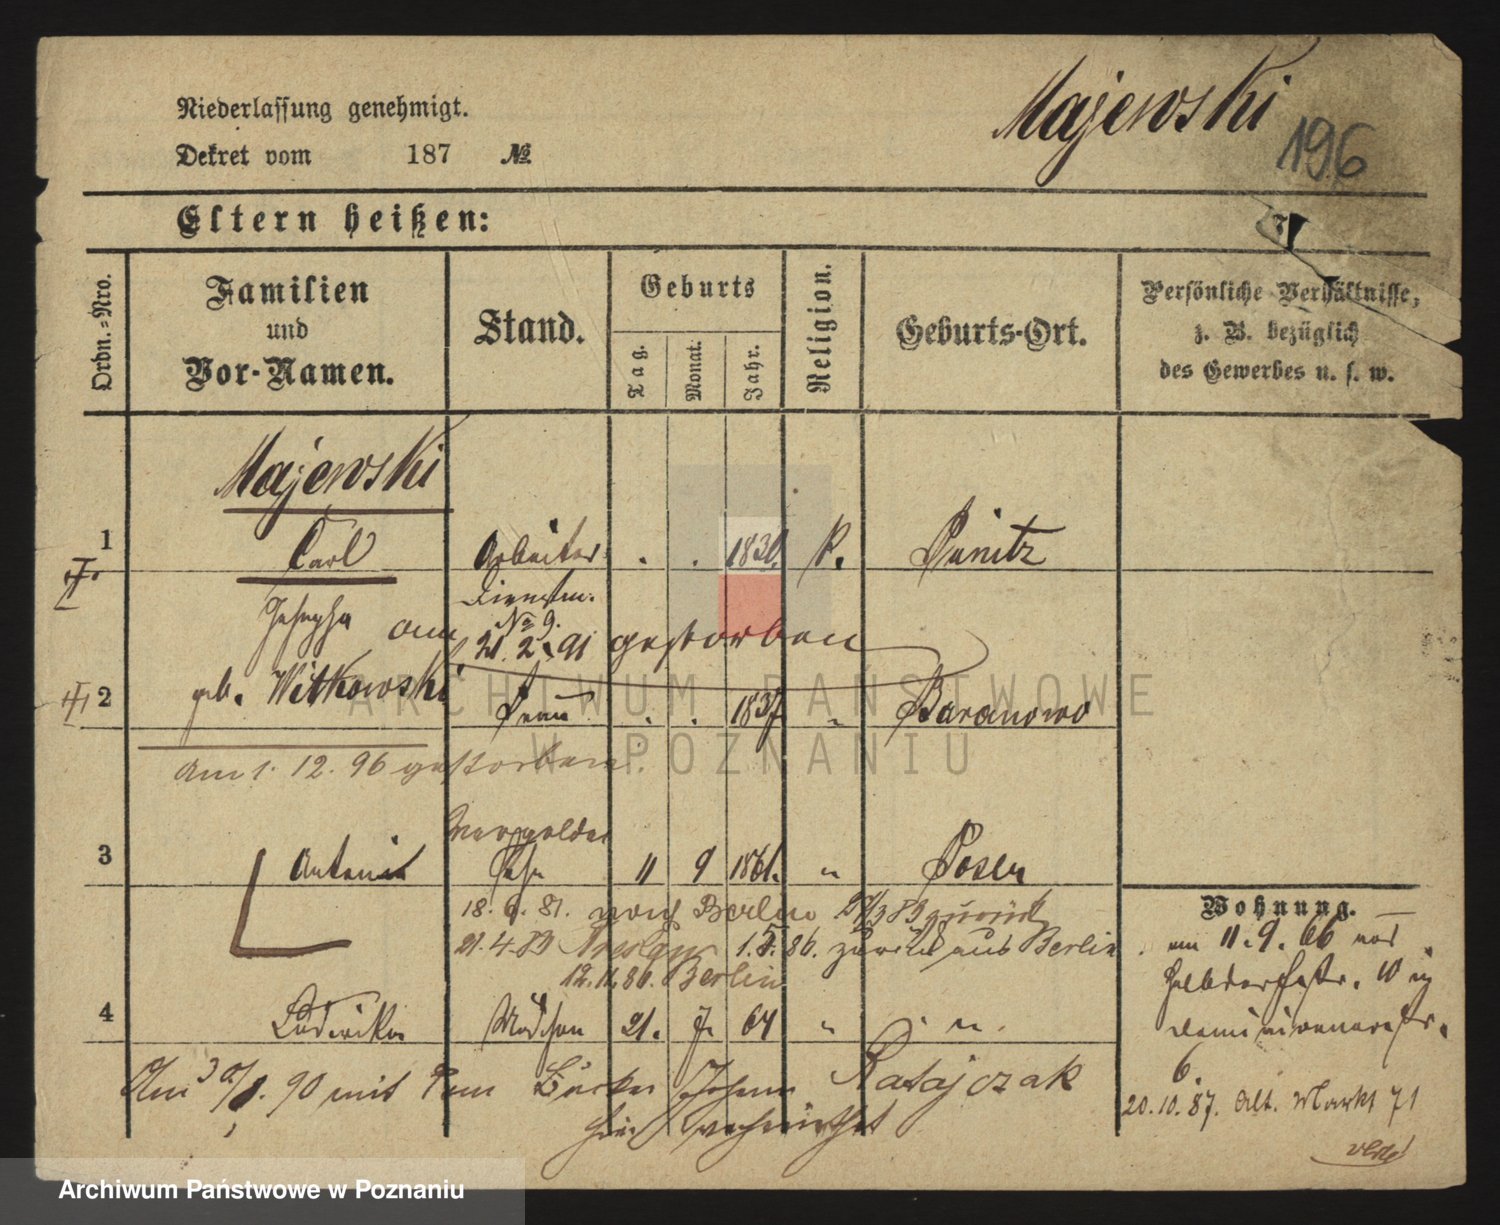 Niederlassung genehmigt.
Majewski
196
Dekret vom 187 №
Eltern heißen:
Ordn.=Nro.
Familien
und
Vor-Namen.
Stand.
Geburts
Tag.
Monat.
Jahr.
Religion.
Geburts-Ort.
Persönliche Verhältnisse,
z. B. bezüglich
des Gewerbes u. s. w.
Majewski
1 Carl Arbeiter . . 1830. K. Punitz
Dienstm.
№ 9.
Josepha am 21.2.91 gestorben
2 geb. Witkowski Frau . . 1837 " Baranowo
am 1. 12. 96 gestorben.
Vergolder
3 Antonie Sohn 11 9 1861. " Posen
18. 6. 81. nach Berlin zurück
21.4.83 Breslau 1.5.86. zurück aus Berlin
12.11.86. Berlin
4 Ludwika Mädchen 21. 7. 64 " . " .
Am 90 mit dem Bäcker Johann Ratajczak
hier verheirathet
Wohnung.
am 11.9.66 von
Halbdorfstr. 10 in
Dominikanerstr.
6
20.10.87. Alt. Markt 71
ARCHIWUM PAŃSTWOWE
W POZNANIU
Archiwum Państwowe w Poznaniu